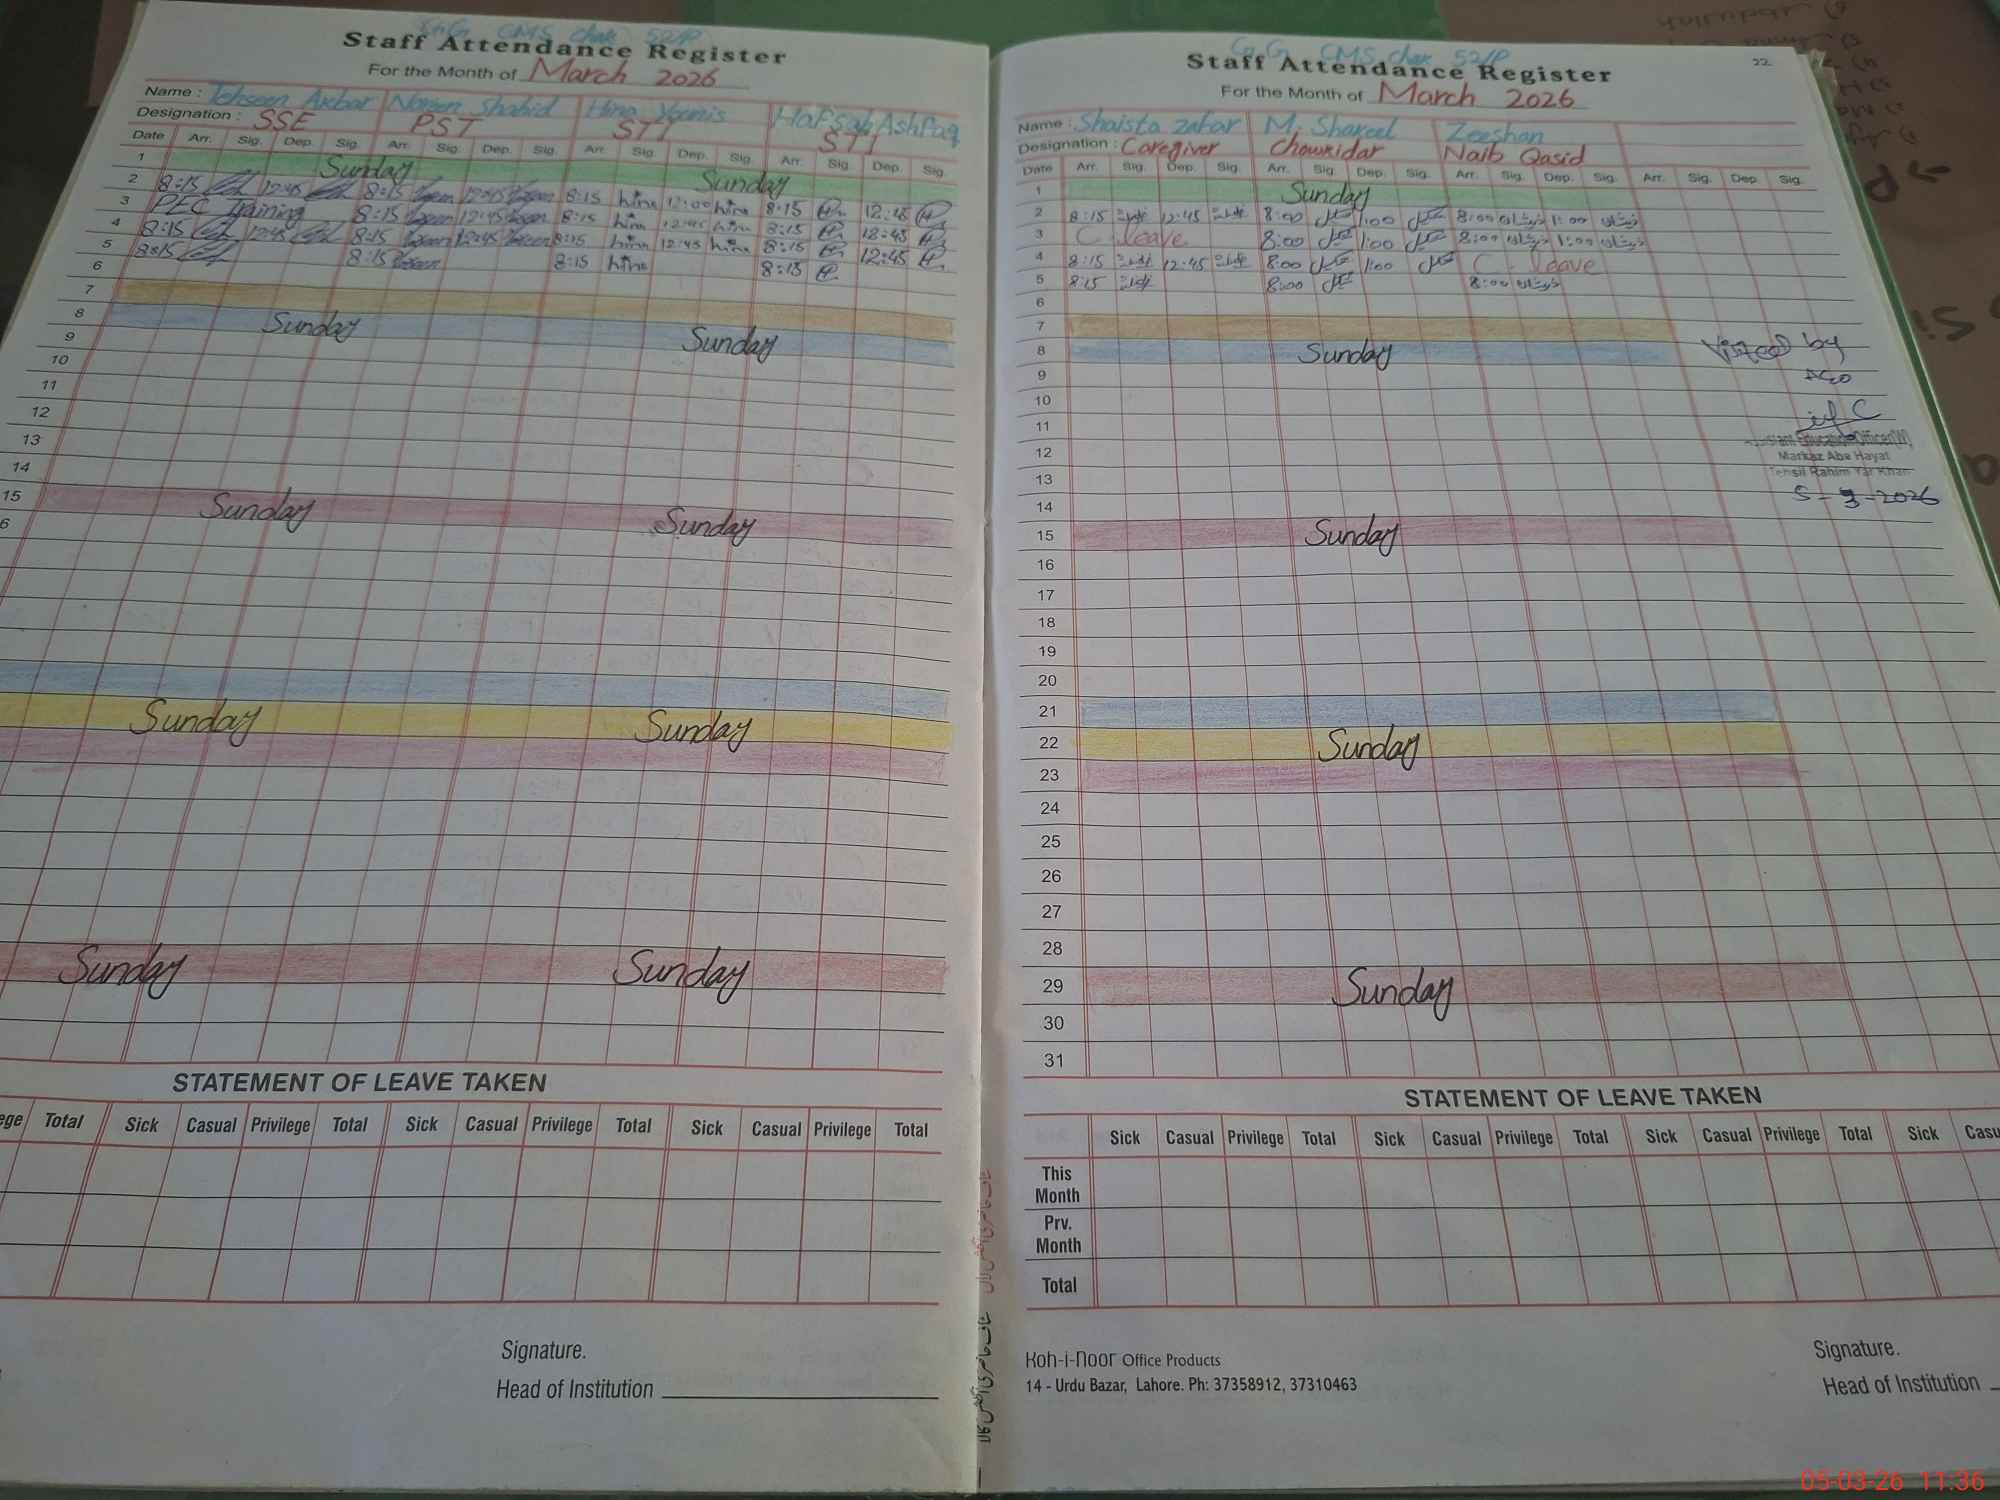 G.G CMS chak 52/P
Staff Attendance Register
For the Month of March 2026
Name : Tehseen Akbar Noreen Shahid Hina Younis Hafsah Ashfaq
Designation : SSE PST STI STI
Date Arr. Sig. Dep. Sig. Arr. Sig. Dep. Sig. Arr. Sig. Dep. Sig. Arr. Sig. Dep. Sig.
1 Sunday Sunday
2 8:15 12:45 8:15 12:45 8:15 hina 12:00 hina 8:15 12:45
3 PEC Training 8:15 12:45 8:15 hina 12:45 hina 8:15 12:45
4 8:15 12:45 8:15 12:45 8:15 hina 12:45 hina 8:15 12:45
5 8:15 8:15 8:15 hina 8:15
6
7
8 Sunday Sunday
9
10
11
12
13
14
15 Sunday Sunday
6
Sunday Sunday
Sunday Sunday
STATEMENT OF LEAVE TAKEN
ege Total Sick Casual Privilege Total Sick Casual Privilege Total Sick Casual Privilege Total
Signature.
Head of Institution
G.G CMS chak 52/P
22
Staff Attendance Register
For the Month of March 2026
Name : Shaista zafar M. Shakeel Zeeshan
Designation : Caregiver Chowkidar Naib Qasid
Date Arr. Sig. Dep. Sig. Arr. Sig. Dep. Sig. Arr. Sig. Dep. Sig. Arr. Sig. Dep. Sig.
1 Sunday
2 8:15 شائستہ 12:45 شائستہ 8:00 شکیل 1:00 شکیل 8:00 ذیشان 1:00 ذیشان
3 C. leave 8:00 شکیل 1:00 شکیل 8:00 ذیشان 1:00 ذیشان
4 8:15 شائستہ 12:45 شائستہ 8:00 شکیل 1:00 شکیل C. leave
5 8:15 شائستہ 8:00 شکیل 8:00 ذیشان
6
7
8 Sunday
9
10
11
12
13
14
15 Sunday
16
17
18
19
20
21
22 Sunday
23
24
25
26
27
28
29 Sunday
30
31
Visited by
AEO
Assistant Education Officer(W)
Markaz Abe Hayat
Tehsil Rahim Yar Khan
5-3-2026
STATEMENT OF LEAVE TAKEN
Sick Casual Privilege Total Sick Casual Privilege Total Sick Casual Privilege Total Sick Casu
This Month
Prv. Month
Total
Koh-i-noor Office Products
14 - Urdu Bazar, Lahore. Ph: 37358912, 37310463
Signature.
Head of Institution
05-03-26 11:36